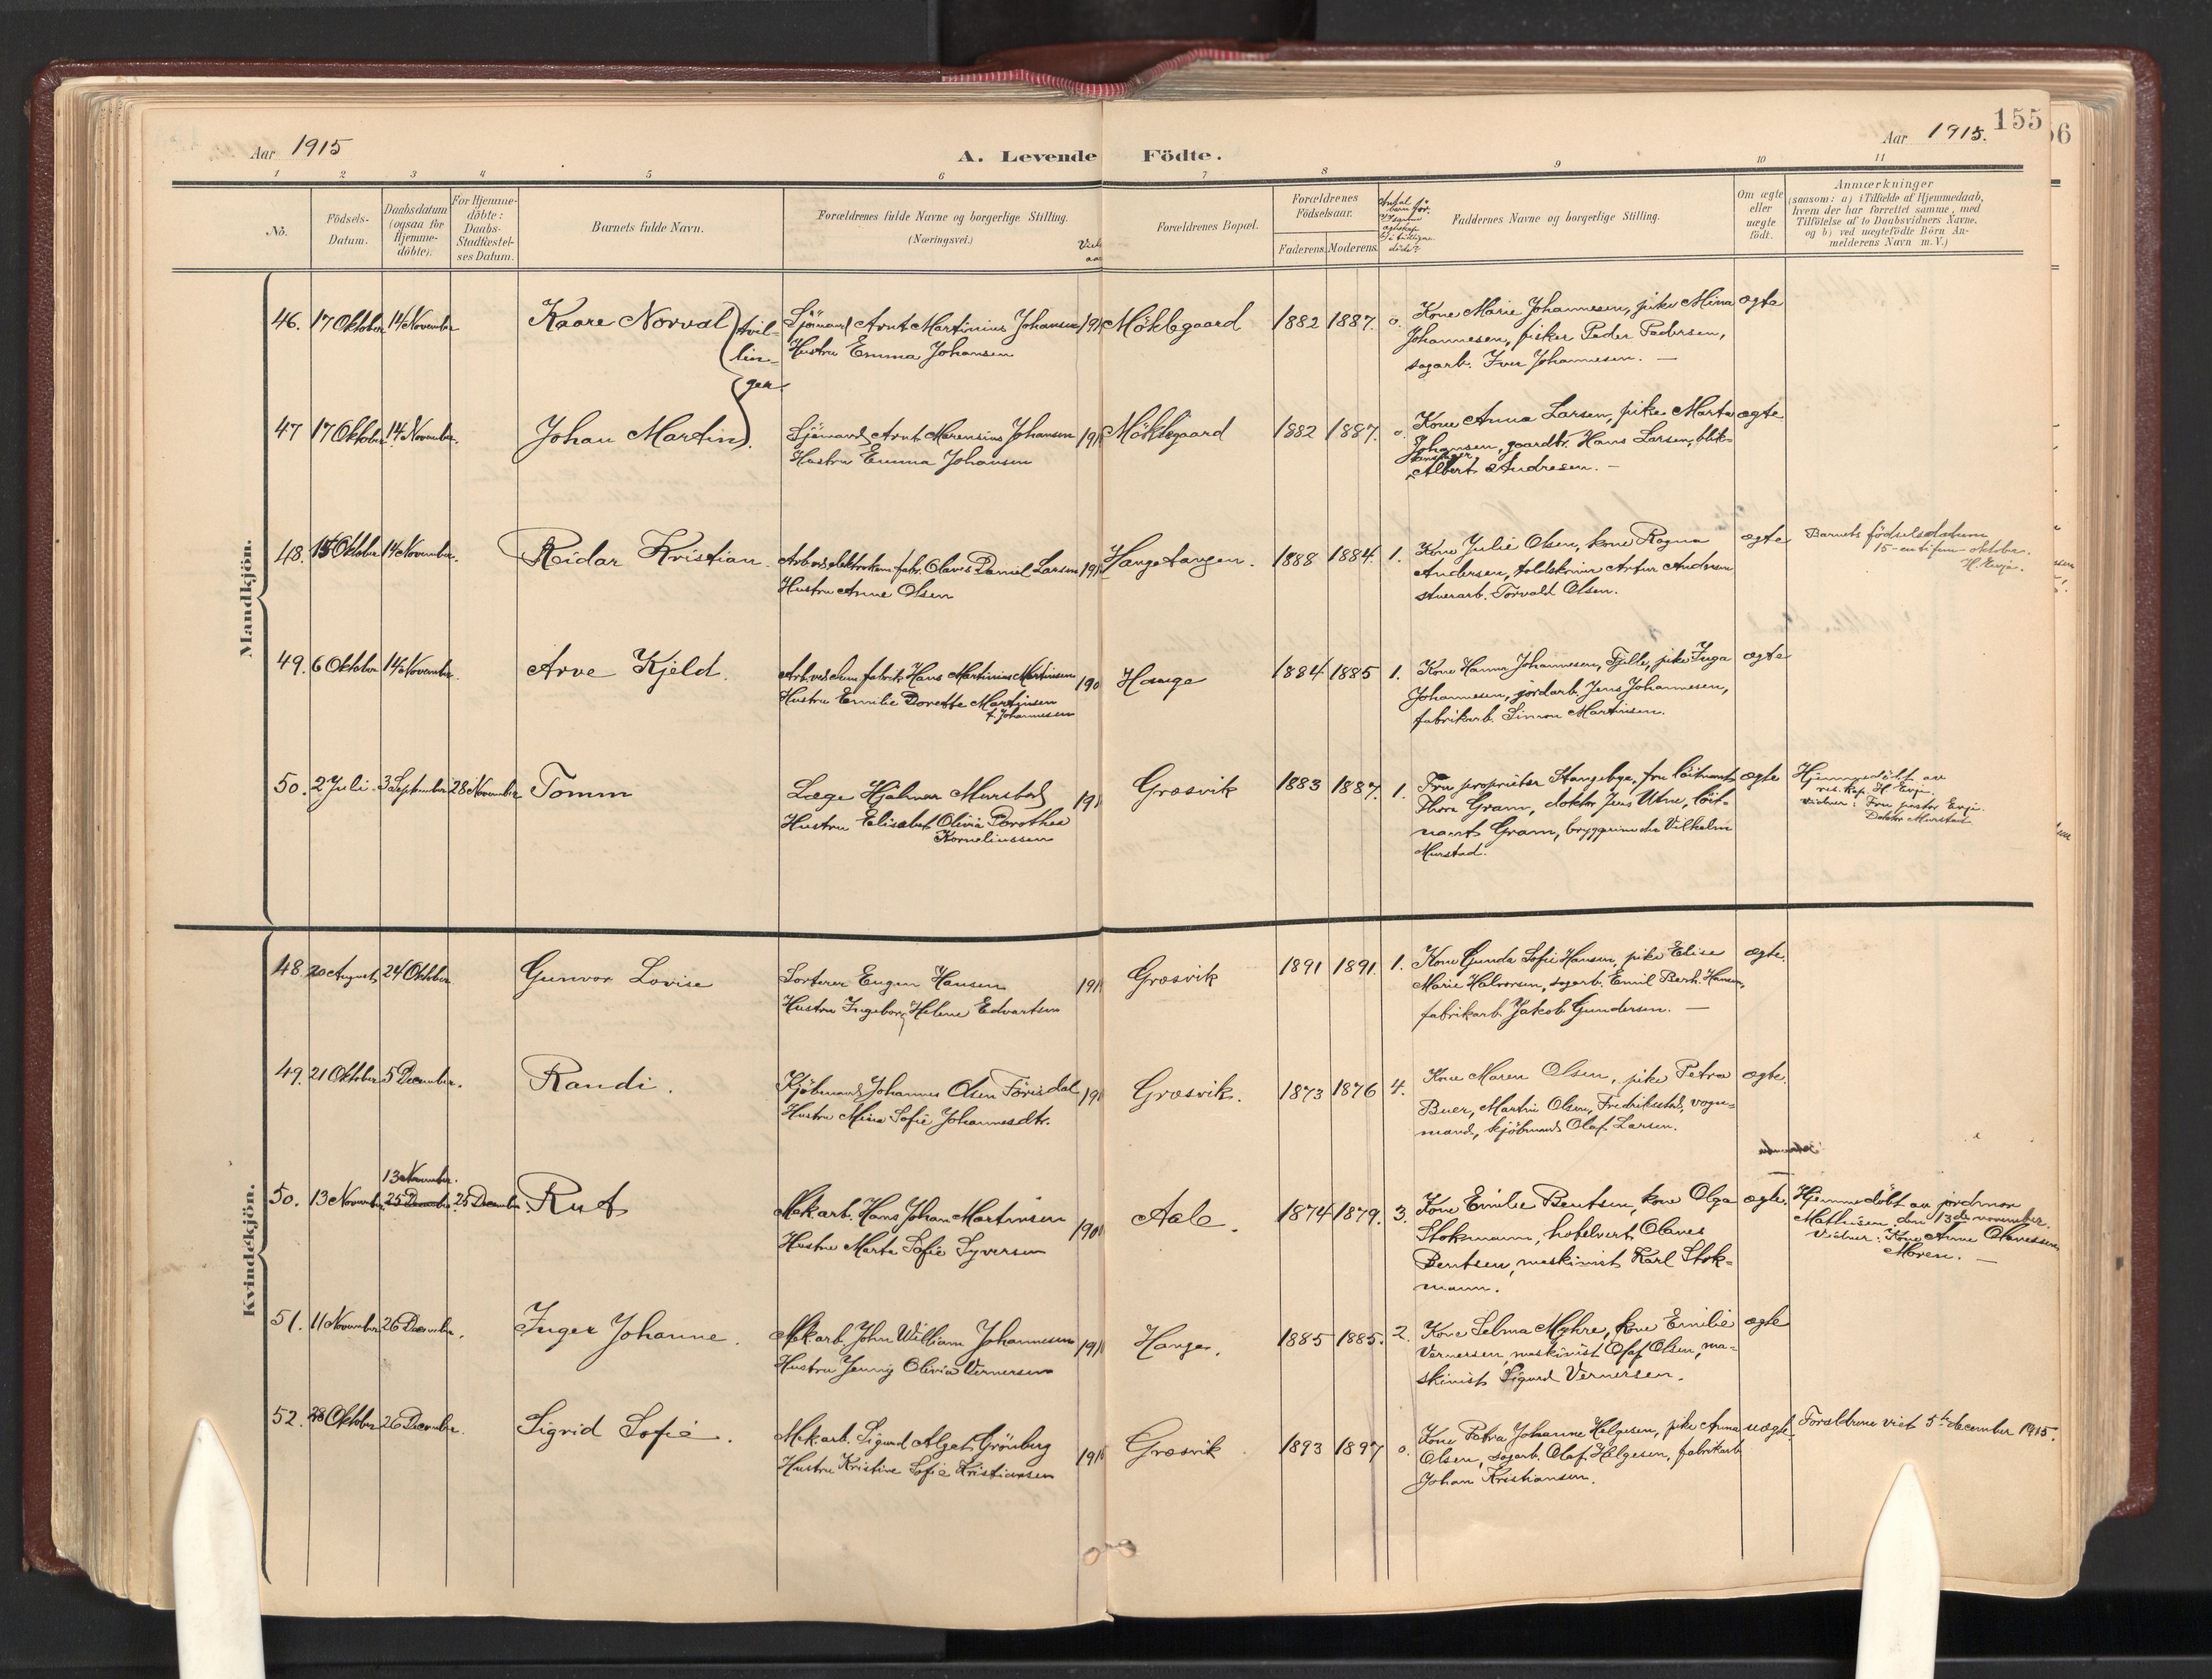 155
56
Aar 1915
A. Levende Födte.
Aar 1915.
1 2 3 4 5 6 7 8 9 10 11
Nô.
Födsels-
Datum.
Daabsdatum
(ogsaa for
Hjemme-
döbte).
For Hjemme-
döbte:
Daabs-
Stadfæstel-
ses Datum.
Barnets fulde Navn.
Forældrenes fulde Navne og borgerlige Stilling.
(Næringsvei.)
Forældrenes Bopæl.
Forældrenes
Födselsaar.
Faderens. Moderens.
Faddernes Navne og borgerlige Stilling.
Om ægte
eller
uægte
födt.
Anmærkninger
(saasom: a) i Tilfælde af Hjemmedaab,
hvem der har forrettet samme, med
Tilföielse af to Daabsvidners Navne,
og b) ved uægtefödte Börn An-
melderens Navn m. V.)
Mandkjön.
46. 17 Oktober 14 November
Kaare Norval
tvil-
lin-
ger
Sjömand Arnt Martinius Johansen
Hustru Emma Johansen
Möklegaard 1882 1887. 0.
Kone Marie Johannesen, pike Mina
Johannesen, fisker Peder Pedersen,
sagarb. Iver Johannesen. —
ægte
47 17 Oktober 14 November.
Johan Martin.
Sjömand Arnt Marensius Johansen
Hustru Emma Johansen
Möklegaard 1882 1887. 0.
Kone Anna Larsen, pike Marta
Johansen, gaardbr. Hans Larsen, blik-
Albert Andresen. —
ægte
48. 15 Oktober 14 November.
Reidar Kristian.
Arb. ved elektrokem. fabr. Olaves Daniel Larsen
Hustru Anne Olsen
Hangetangen. 1888 1884. 1.
Kone Julie Olsen, kone Ragna
Andersen, toldskriver Artur Andersen
stuerarb. Torvald Olsen.
ægte
Barnets födselsdatum
15-en ti fem oktober.
H. Evje.
49. 6 Oktober 14 November.
Arve Kjeld.
Arb. ved kem. fabrik Hans Martinius Martinsen
Hustru Emilie Dorette Martinsen
f. Johannessen
190
Hauge 1884 1885 1.
Kone Hanna Johannesen, Fjelle, pike Inga
Johannesen, jordarb. Jens Johannesen,
fabrikarb. Simon Martinsen.
ægte
50. 2 Juli. 3 September 28 November
Tomm
Læge Hjalmar Murstad
Hustru Elisabet Olivia Dorothea
Korneliussen
Græsvik 1883 1887. 1.
Fru proprietær Stangebye, fru löitnant
Thora Gram, doktor Jens Utne, löit-
nant Gram, bryggerieier Vilhelm
Murstad.
ægte
Hjemmedöbt av
res. kap. H. Evje.
vidner: Fru pastor Evje
Doktor Murstad
Kvindekjön.
48 20 August 24 Oktober
Gunvor Lovise
Sorterer Eugen Hansen
Hustru Ingeborg Helene Edvartsen
Græsvik 1891 1891. 1.
Kone Gunda Sofie Hansen, pike Elise
Marie Halvorsen, sagarb. Emil Berh. Hansen,
fabrikarb. Jakob Gundersen. —
ægte.
49. 21 Oktober 5 December.
Randi.
Kjöbmand Johannes Olsen Förisdal
Hustru Mina Sofie Johannesdtr.
Græsvik. 1873 1876 4.
Kone Maren Olsen, pike Petra
Buer, Martin Olsen, Fredrikstad, vogn-
mand, kjöbmand Olaf Larsen.
ægte.
13 November.
50. 13 November 25 December. 25 December.
Rut
Mek. arb. Hans Johan Martinsen
Hustru Marta Sofie Syversen
190
Aale. 1874 1879. 3.
Kone Emilie Bentsen, kone Olga
Stokmann, hotelvert Olaves
Bentsen, maskinist Karl Stok-
mann.
ægte.
Hjemmedöbt av jordmor
Mathisen, den 13de november.
Vidner: Kone Anne Olavessen,
Moren. —
51. 11 November 26 December.
Inger Johanne.
Mek. arb. John William Johannesen
Hustru Jenny Olivia Vernersen
Hauge. 1885 1885. 2.
Kone Selma Myhre, kone Emilie
Vernersen, maskinist Olaf Olsen, ma-
skinist Sigurd Vernersen.
ægte
52. 28 Oktober 26 December.
Sigrid Sofie.
Mek. arb. Sigurd Alget Grönberg
Hustru Kristine Sofie Kristiansen
Græsvik 1893 1897 0.
Kone Petra Johanne Helgesen, pike Anna
Olsen, sagarb. Olaf Helgesen, fabrikarb.
Johan Kristiansen.
uægte.
Forældrene viet 5te december 1915.